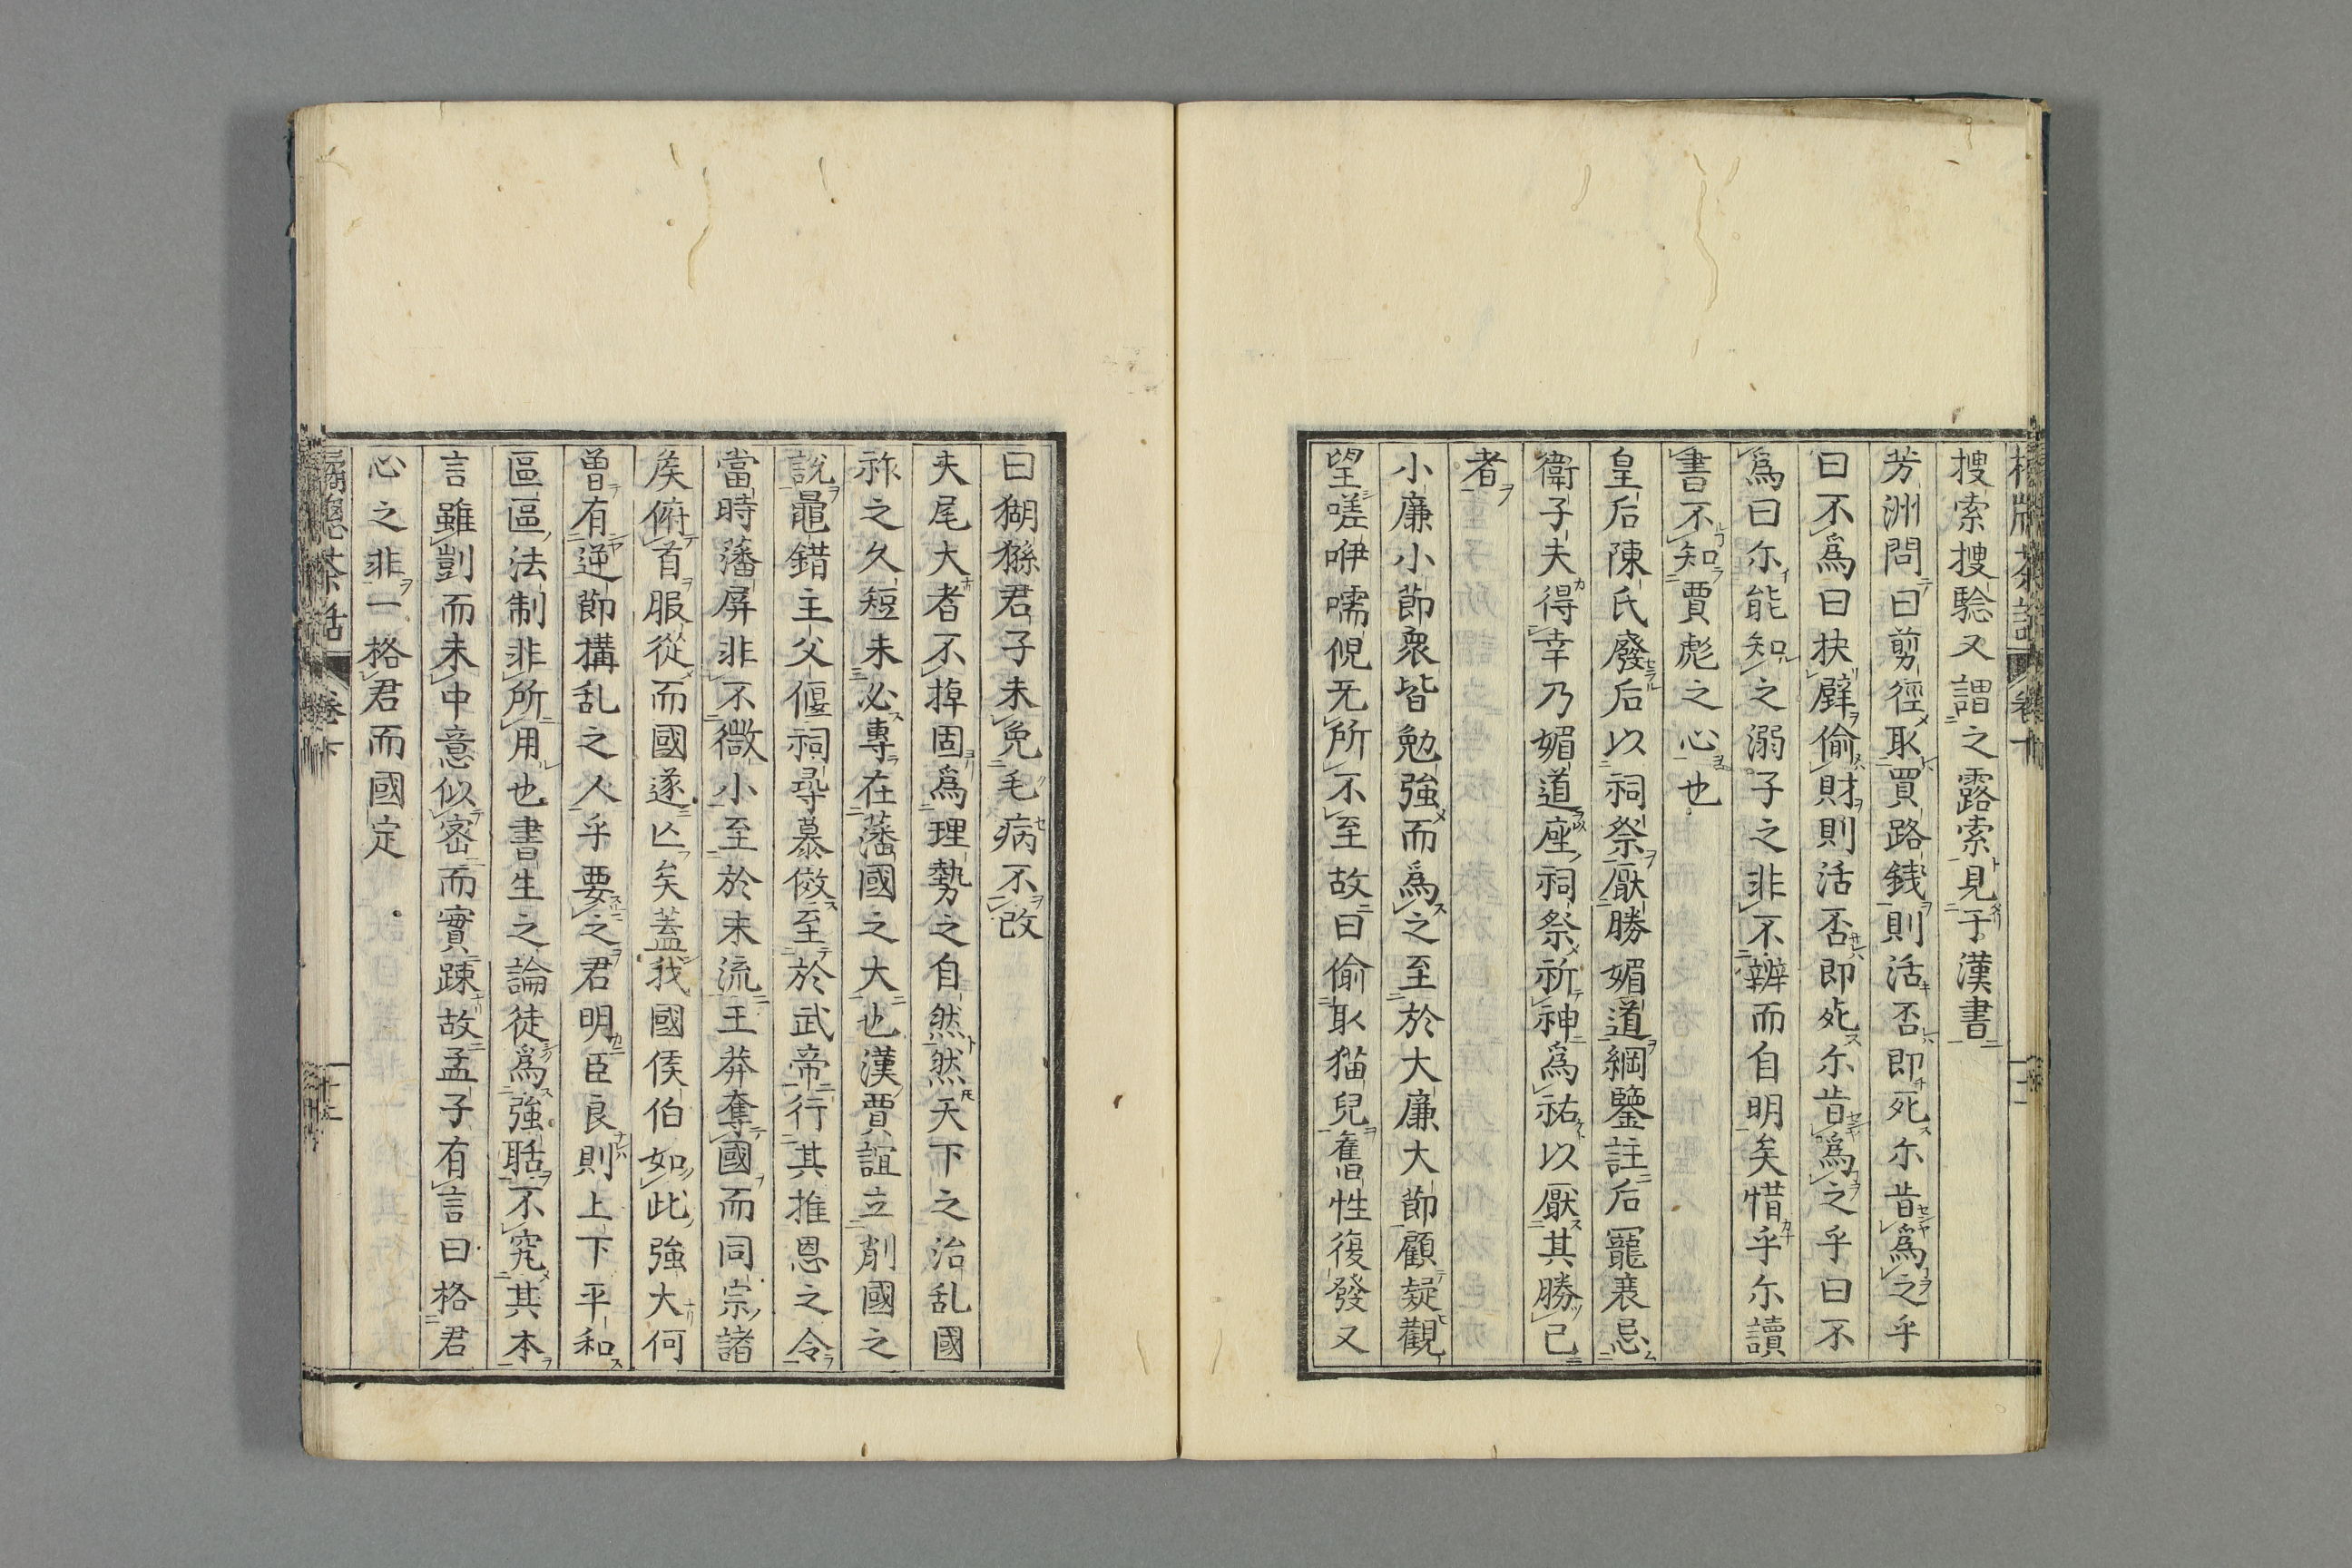 搜索搜騐又謂之露索見于漢書
芳洲問曰剪徑取買路錢則活否即死尓肯爲之乎
曰不爲曰抉壁偷財則活否即死尓肯爲之乎曰不
爲曰尓能知之溺子之非不辨而自明矣惜乎尓讀
書不知賈彪之心也
皇后陳氏廢后以祠祭厭勝媚道綱鑒註后寵衰忌
衛子夫得幸乃媚道座祠祭祈神爲祐以厭其勝已
者
小廉小節衆皆勉強而爲之至於大廉大節顧疑觀
望嗟咿嚅倪无所不至故曰偷取猫兒舊性復發又
曰猢猻君子未免毛病不改
夫尾大者不掉固爲理勢之自然然天下之治乱國
祚之久短未必專在藩國之大也漢賈誼立削國之
說鼂錯主父偃祠尋慕倣至於武帝行其推恩之令
當時藩屏非不微小至於末流王莽奪國而同宗諸
矦俯首服從而國遂亾矣蓋我國侯伯如此強大何
曽有逆節構乱之人乎要之君明臣良則上下平和
區區法制非所用也書生之論徒爲強聒不究其本
言雖剴而未中意似密而實踈故孟子有言曰格君
心之非一格君而國定
窻茶話 卷下 十二